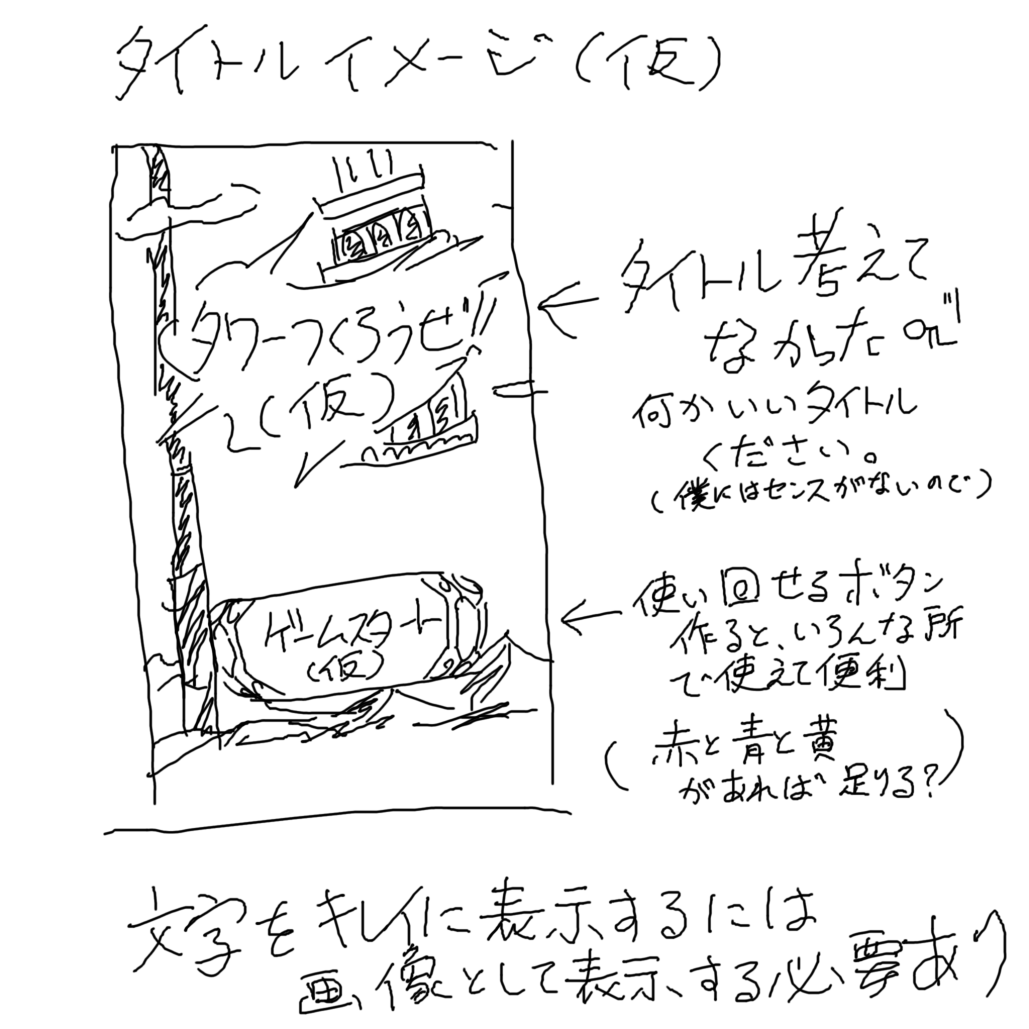 タイトルイメージ(仮)
タワーつくろうぜ!!
(仮)
ゲームスタート
(仮)
タイトル考えて
なかった
何かいいタイトル
ください。
(僕にはセンスがないので)
使い回せるボタン
作ると、いろんな所
で使えて便利
(赤と青と黄
があれば足りる?)
文字をキレイに表示するには
画像として表示する必要あり